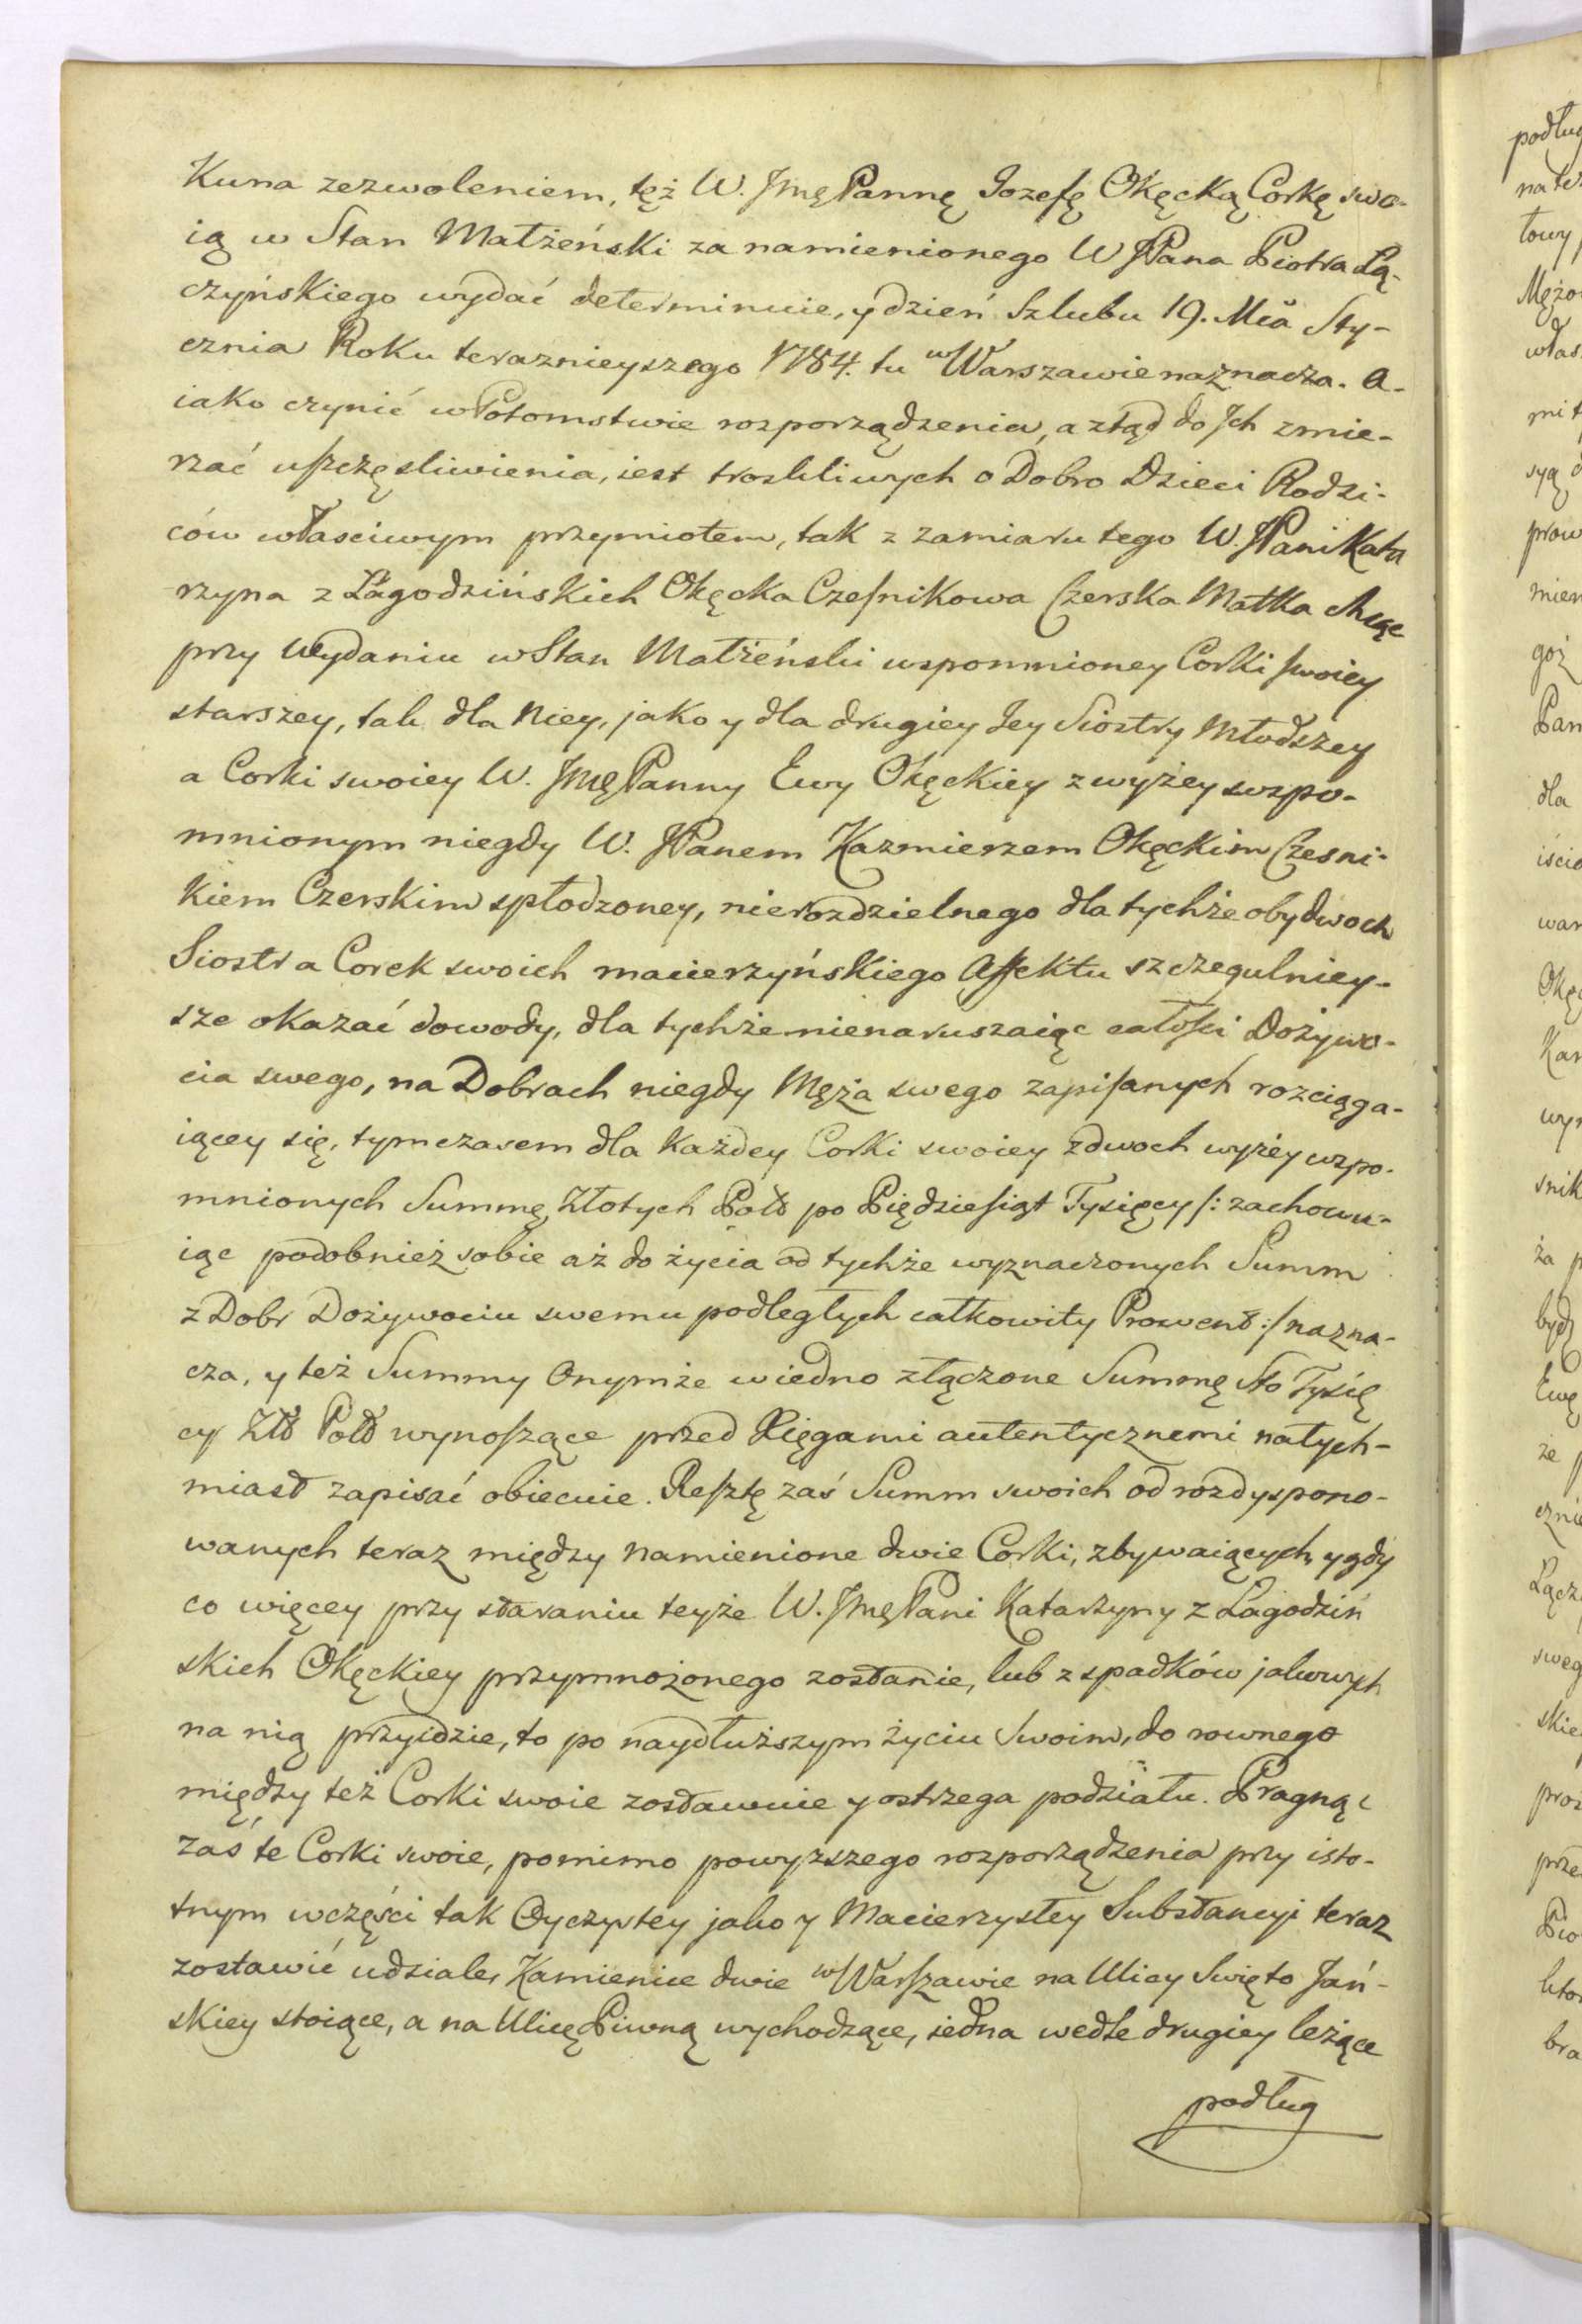 Kuna zezwoleniem, tęż W. JmęPannę Jozefę Okęcką Corkę swo-
ią w Stan Małżeński za namienionego W JPana Piotra Łą-
czyńskiego wydać determinuie, y dzień Szlubu 19. Mca Sty-
cznia Roku teraznieyszego 1784. tu w Warszawie naznacza. A-
iako czynić w Potomstwie rozporządzenia, a ztąd do Jch zmie-
rzać uszczęsliwienia, iest troskliwych o Dobro Dzieci Rodzi-
ców własciwym przymiotem, tak z zamiaru tego W. JPani Kata
rzyna z Łagodzińskich Okęcka Czesnikowa Czerska Matka chcąc
przy wydaniu w Stan Małżeński wspomnioney Corki swoiey
starszey, tak dla Niey, jako y dla drugiey Jey Siostry Młodszey
a Corki swoiey W. JmęPanny Ewy Okęckiey z wyżey wspo-
mnionym niegdy W. JPanem Kazmierzem Okęckim Czesni-
kiem Czerskim spłodzoney, nierozdzielnego dla tychże obydwoch
Siostr a Corek swoich macierzyńskiego Affektu szczegulniey-
sze okazać dowody, dla tychże nienaruszaiąc całości Dożywo-
cia swego, na Dobrach niegdy Męża swego zapisanych rozciąga-
iącey się, tymczasem dla każdey Corki swoiey z dwoch wyżey wspo-
mnionych Summę Złotych Polł po Piędziesiąt Tysięcy /: zachowu-
iąc podobnież sobie aż do życia od tychże wyznaczonych Summ
z Dobr Dożywociu swemu podległych całkowity Prowent :/ nazna-
cza, y też Summy Onymże w iedno złączone Summę Sto Tysię
cy Złł Polł wynoszące przed Xięgami autentycznemi natych-
miast zapisać obiecuie. Resztę zaś Summ swoich od rozdyspono-
wanych teraz między namienione dwie Corki, zbywaiących, y gdy
co więcey przy staraniu teyże W. JmęPani Katarzyny z Łagodziń
skich Okęckiey przymnożonego zostanie, lub z spadków jakowych
na nią przyidzie, to po naydłuższym życiu Swoim, do rownego
między też Corki swoie zostawuie y ostrzega podziału. Pragnąc
zaś te Corki swoie, pomimo powyższego rozporządzenia przy isto-
tnym w części tak Oyczystey jako y Macierzystey Substancyi teraz
zostawić udziale, Kamienice dwie w Warszawie na Ulicy Święto Jań-
skiey stoiące, a na Ulicę Piwną wychodzące, iedna wedle drugiey leżące
podług